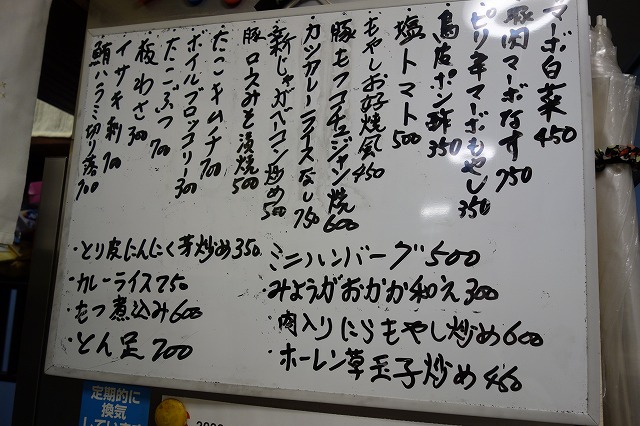 マーボ白菜 450
豚肉マーボなす 750
ピリ辛マーボもやし 350
鳥皮ポン酢 350
塩トマト 500
もやしお好焼風 450
豚もつコチュジャン焼 600
カツカレーライスなし 750
新じゃがベーコン炒め 500
豚ロースみそ漬焼 500
たこキムチ 700
ボイルブロッコリー 300
たこぶつ 700
板わさ 300
イサキ刺 700
鮪ハラミ切り落 700
・とり皮にんにく芽炒め 350
・カレーライス 750
・もつ煮込み 600
・とん足 700
・ミニハンバーグ 500
・みょうがおかか和え 300
・肉入りにらもやし炒め 600
・ホーレン草玉子炒め 450
定期的に
換気
しています